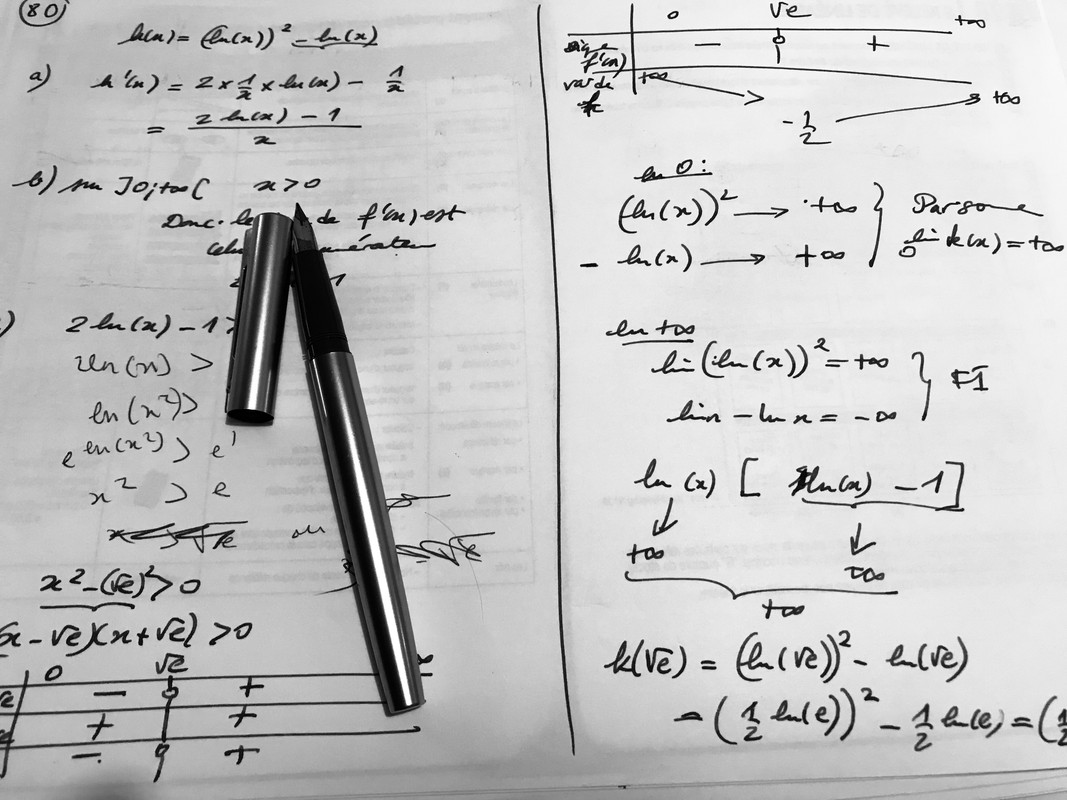 80)
k(x) = (ln(x))² - ln(x)
a) k'(x) = 2 × 1/x × ln(x) - 1/x
= (2 ln(x) - 1)/x
b) sur ]0;+∞[ x > 0
Donc le de f'(x) est
2 ln(x) - 1 >
2ln(x) >
ln(x²) >
e^ln(x²) > e¹
x² > e
ou
x² - (√e)² > 0
(x - √e)(x + √e) > 0
0 √e
- 0 +
+ +
- 0 +
0 √e +∞
signe f'(x) - 0 +
var de k +∞ -1/2 +∞
en 0:
(ln(x))² → +∞
- ln(x) → +∞
} Par somme lim k(x) = +∞
0
en +∞
lim (ln(x))² = +∞
lim - ln x = -∞
} FI
ln(x) [ ln(x) - 1 ]
+∞ +∞
+∞
k(√e) = (ln(√e))² - ln(√e)
= (1/2 ln(e))² - 1/2 ln(e) = (